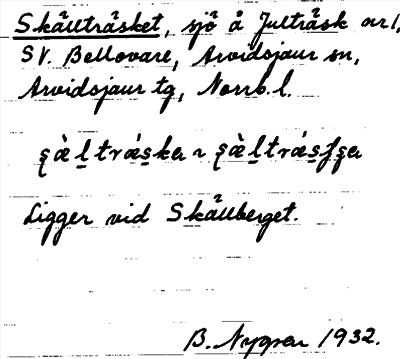 Skällträsket, sjö å Julträsk nr 1,
SV. Bellovare, Arvidsjaur sn,
Arvidsjaur tg, Norrb. l.
Ligger vid Skällberget.
B. Nygren 1932.